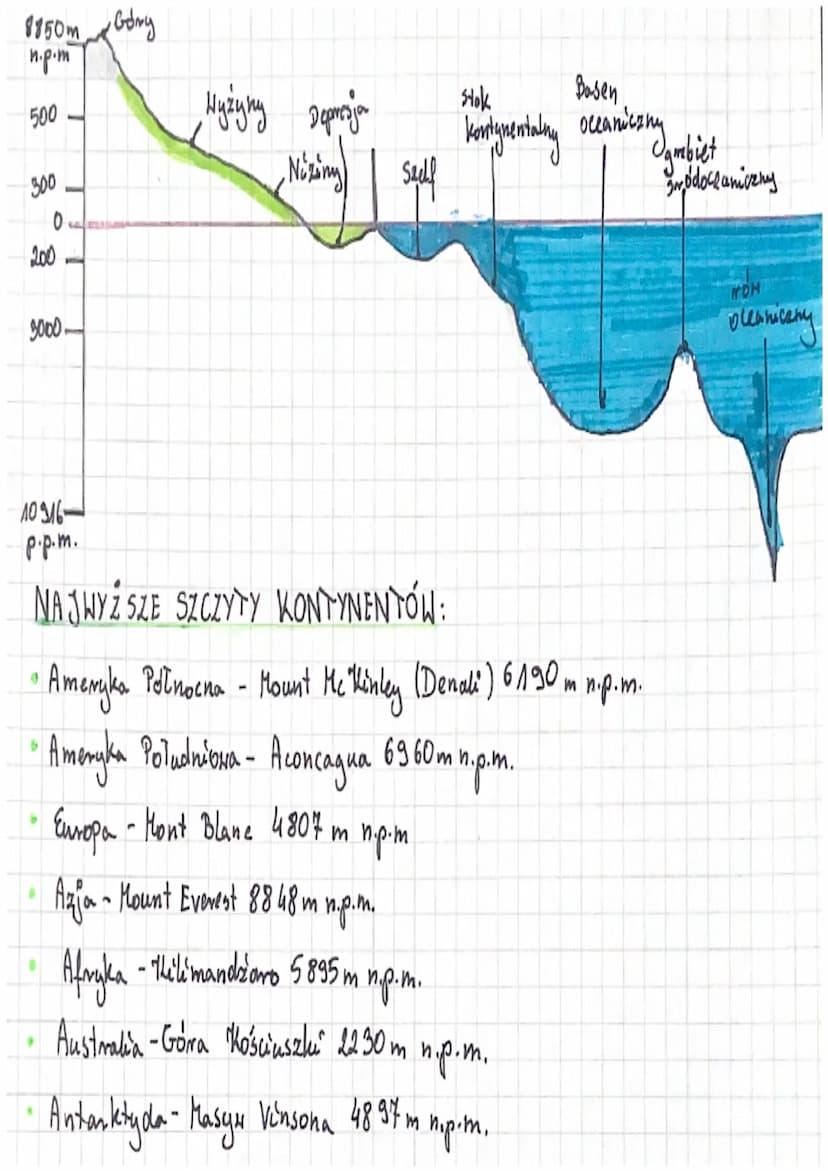 8850m
n.p.m
Góry
500
Wyżyny
Depresja
stok
kontynentalny
Basen
oceaniczny
grzbiet
śródoceaniczny
300
Niziny
Szelf
0
200
rów
oceaniczny
3000
10916
p.p.m.
NAJWYŻSZE SZCZYTY KONTYNENTÓW:
• Ameryka Północna - Mount McKinley (Denali) 6190 m n.p.m.
• Ameryka Południowa - Aconcagua 6960m n.p.m.
• Europa - Mont Blanc 4807 m n.p.m
• Azja - Mount Everest 8848m n.p.m.
• Afryka - Kilimandżaro 5895m n.p.m.
• Australia - Góra Kościuszki 2230m n.p.m.
• Antarktyda - Masyw Vinsona 4897m n.p.m.